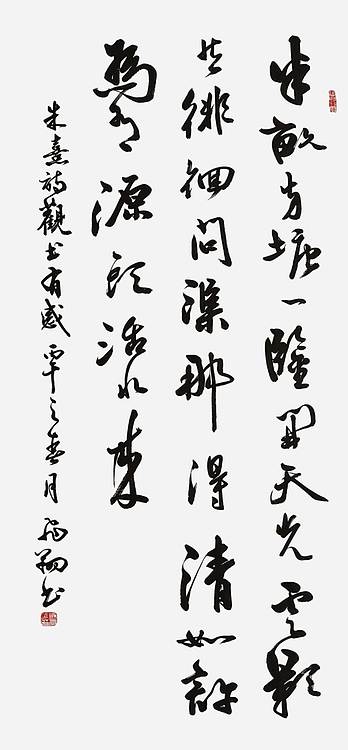 半畝方塘一鑑開天光云影
共徘徊問渠那得清如許
為有源頭活水來
朱熹詩觀書有感 之春月 翔書